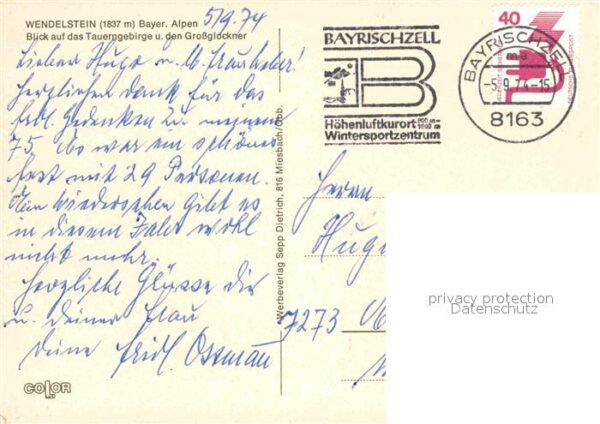 WENDELSTEIN (1837 m) Bayer. Alpen
Blick auf das Tauerngebirge u. den Großglockner
5/9.74
Lieber Hugo u. lb.
Herzlichen Dank für das
frdl. Gedenken zu meinem
75. Es war ein schönes
Fest mit 29 Personen.
Ein Wiedersehen gibt es
in diesem Jahr wohl
nicht mehr.
Herzliche Grüsse dir
u. deiner Frau
deine
COLOR
Werbeverlag Sepp Dietrich, 816 Miesbach/Obb.
BAYRISCHZELL
B
Höhenluftkurort 800 m - 1800 m
Wintersportzentrum
40
BAYRISCHZELL
ma
-5.9.74-15
8163
Herrn
Hugo
7273
privacy protection
Datenschutz